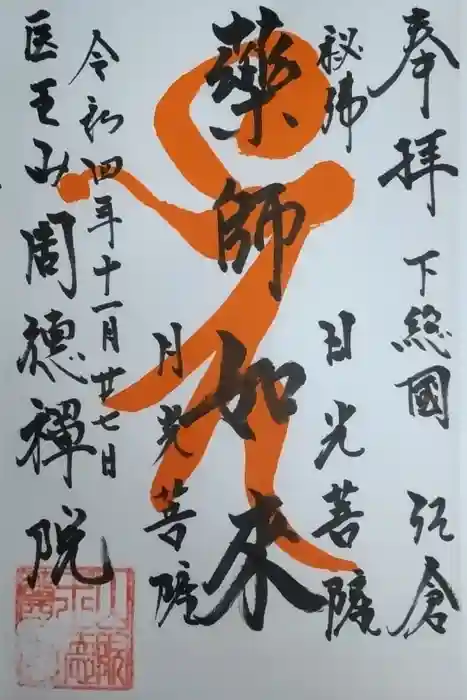 奉拝 下総國 弘倉
秘佛 日光菩薩
藥師如來
月光菩薩
令和四年十一月廿七日
医王山周德禪院